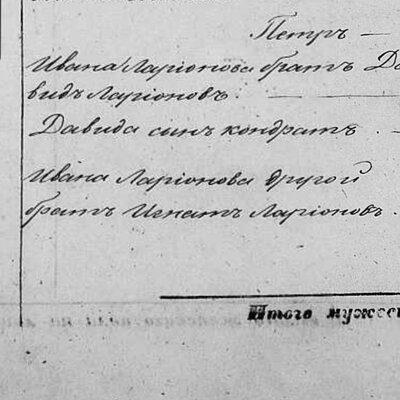 Петръ —
Ивана Ларіонова братъ Да
видъ Ларіоновъ.
Давида сынъ кондратъ
Ивана Ларіонова другой
братъ Игнатъ Ларіоновъ.
Итого мужес